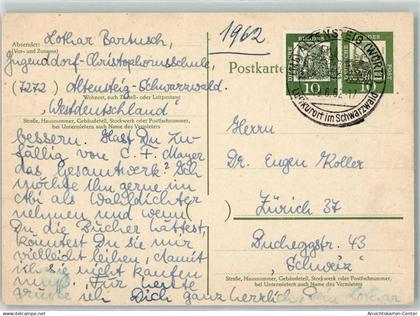 Absender: Lothar Bartusch,
(Vor- und Zuname)
Jugenddorf-Christophorusschule,
(7272) Altensteig-Schwarzwald
Wohnort, auch Zustell- oder Leitpostamt
"Westdeutschland"
Straße, Hausnummer, Gebäudeteil, Stockwerk oder Postfachnummer,
bei Untermietern auch Name des Vermieters
1962
Postkarte
DEUTSCHE BUNDESPOST
10
10
ALTENSTEIG (WÜRTT)
6.62.-17
Luftkurort im Schwarzwald
bessern. Hast Du zu-
fällig von C. F. Meyer
das Gesamtwerk? Ich
möchte Ihn gerne im
Abi als Wahldichter
nehmen und wenn
Du die Bücher hättest,
könntest Du sie mir
vielleicht leihen, damit
ich sie nicht kaufen
muß. Für heute
grüße ich Dich ganz herzlich, Dein Lothar
Herrn
Dr. Eugen Koller
Zürich 37
Bucheggstr. 43
"Schweiz"
Straße, Hausnummer, Gebäudeteil, Stockwerk oder Postfachnummer,
bei Untermietern auch Name des Vermieters
Ansichtskarten-Center